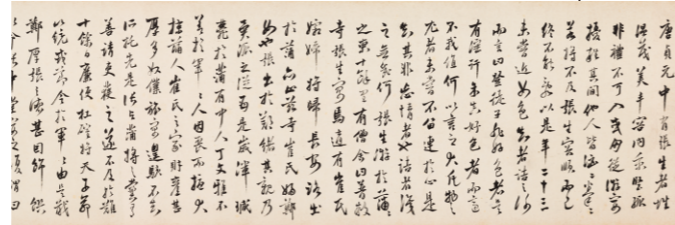 唐貞元中有張生者性
溫茂美丰容內秉堅孤
非禮不可入或朋從遊宴
擾雜其間他人皆洶洶拳拳
若將不及張生容順而已
終不能亂以是年二十三
未嘗近女色知者詰之謝
而言曰登徒子非好色者是
有淫行余真好色者而適
不我值何以言之大凡物之
尤者未嘗不留連於心是
知其非忘情者也詰者識
之無幾何張生遊於蒲蒲
之東十餘里有僧舍曰普救
寺張生寓焉適有崔氏
孀婦將歸長安路出
於蒲亦止茲寺崔氏婦鄭
女也張出於鄭緒其親乃
異派之從母是歲渾瑊
薨於蒲有中人丁文雅不
善於軍軍人因喪而擾大
掠蒲人崔氏之家財產甚
厚多奴僕旅寓遑駭不知
所託先是張與蒲將之黨有
善請吏護之遂不及於難
十餘日廉使杜確將天子命
以統戎節令於軍軍由是戢
鄭厚張之德甚因飾饌
以命張中堂宴之復謂曰